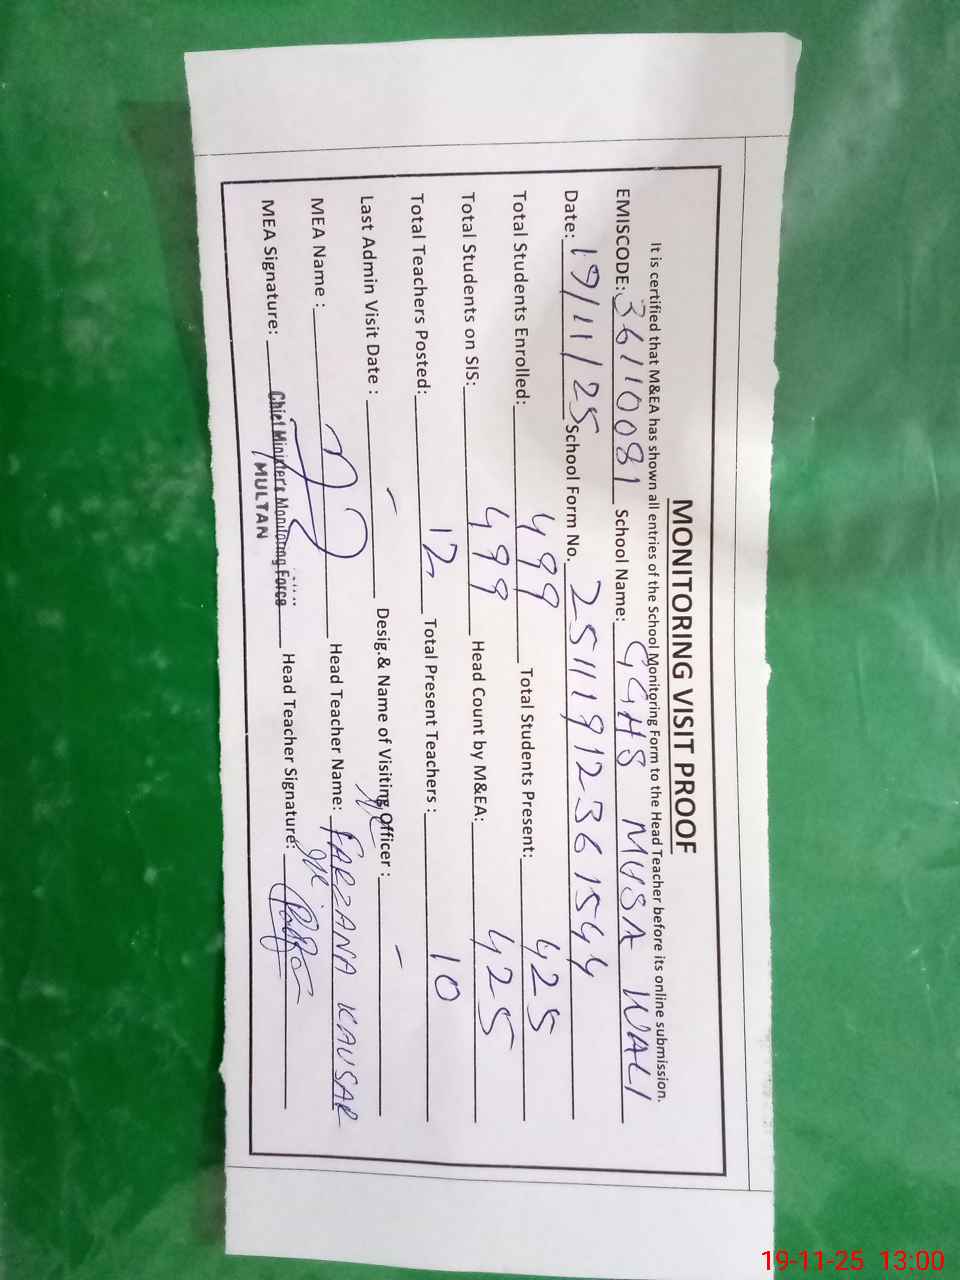 MONITORING VISIT PROOF
It is certified that M&EA has shown all entries of the School Monitoring Form to the Head Teacher before its online submission.
EMISCODE: 36110081 School Name: GGHS MUSA WALI
Date: 19/11/25 School Form No. 25111912361544
Total Students Enrolled: 499 Total Students Present: 425
Total Students on SIS: 499 Head Count by M&EA: 425
Total Teachers Posted: 12 Total Present Teachers : 10
Last Admin Visit Date : - Desig.& Name of Visiting Officer : -
MEA Name : Head Teacher Name: FARZANA KAUSAR
MEA Signature: Head Teacher Signature:
Chief Minister's Monitoring Force
MULTAN
19-11-25 13:00